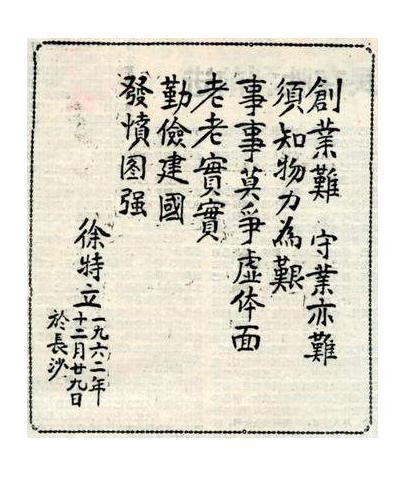 創業難 守業亦難
須知物力為艱
事事莫爭虛体面
老老實實
勤儉建國
發憤图强
徐特立
一九六二年
十二月廿九日
於長沙